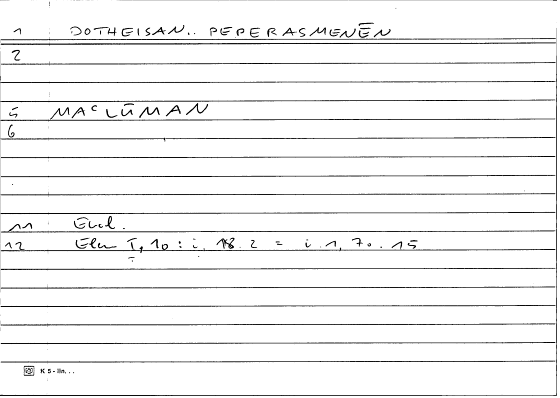 1 DOTHEISAN.. PEPERASMENĒN
2
5 MAᶜLŪMAN
6
11 Eucl.
12 Elem I, 10 : i. 18. 2 = i. 1, 70. 15
K 5 - lin. . .